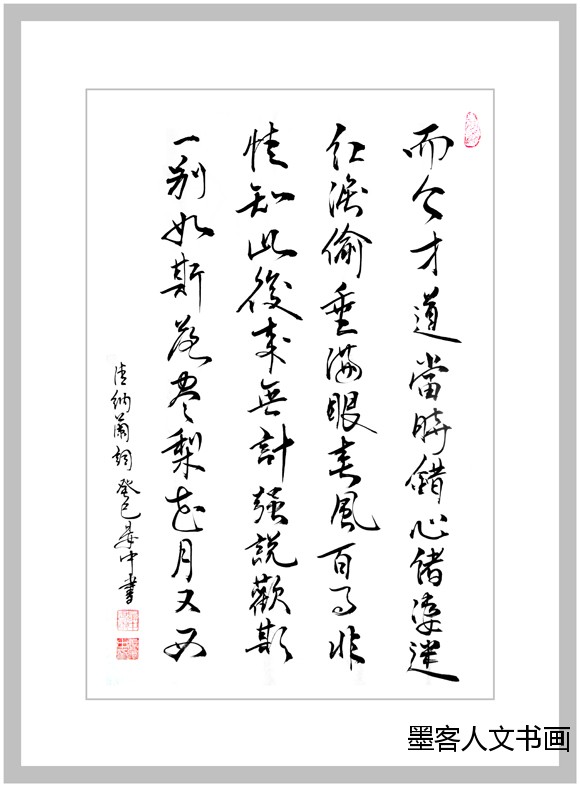 而今才道當時錯心緒凄迷
紅淚偷垂滿眼春風百事非
情知此後來無計强說歡期
一別如斯落盡梨花月又西
清納蘭詞 癸巳 中書
墨客人文书画